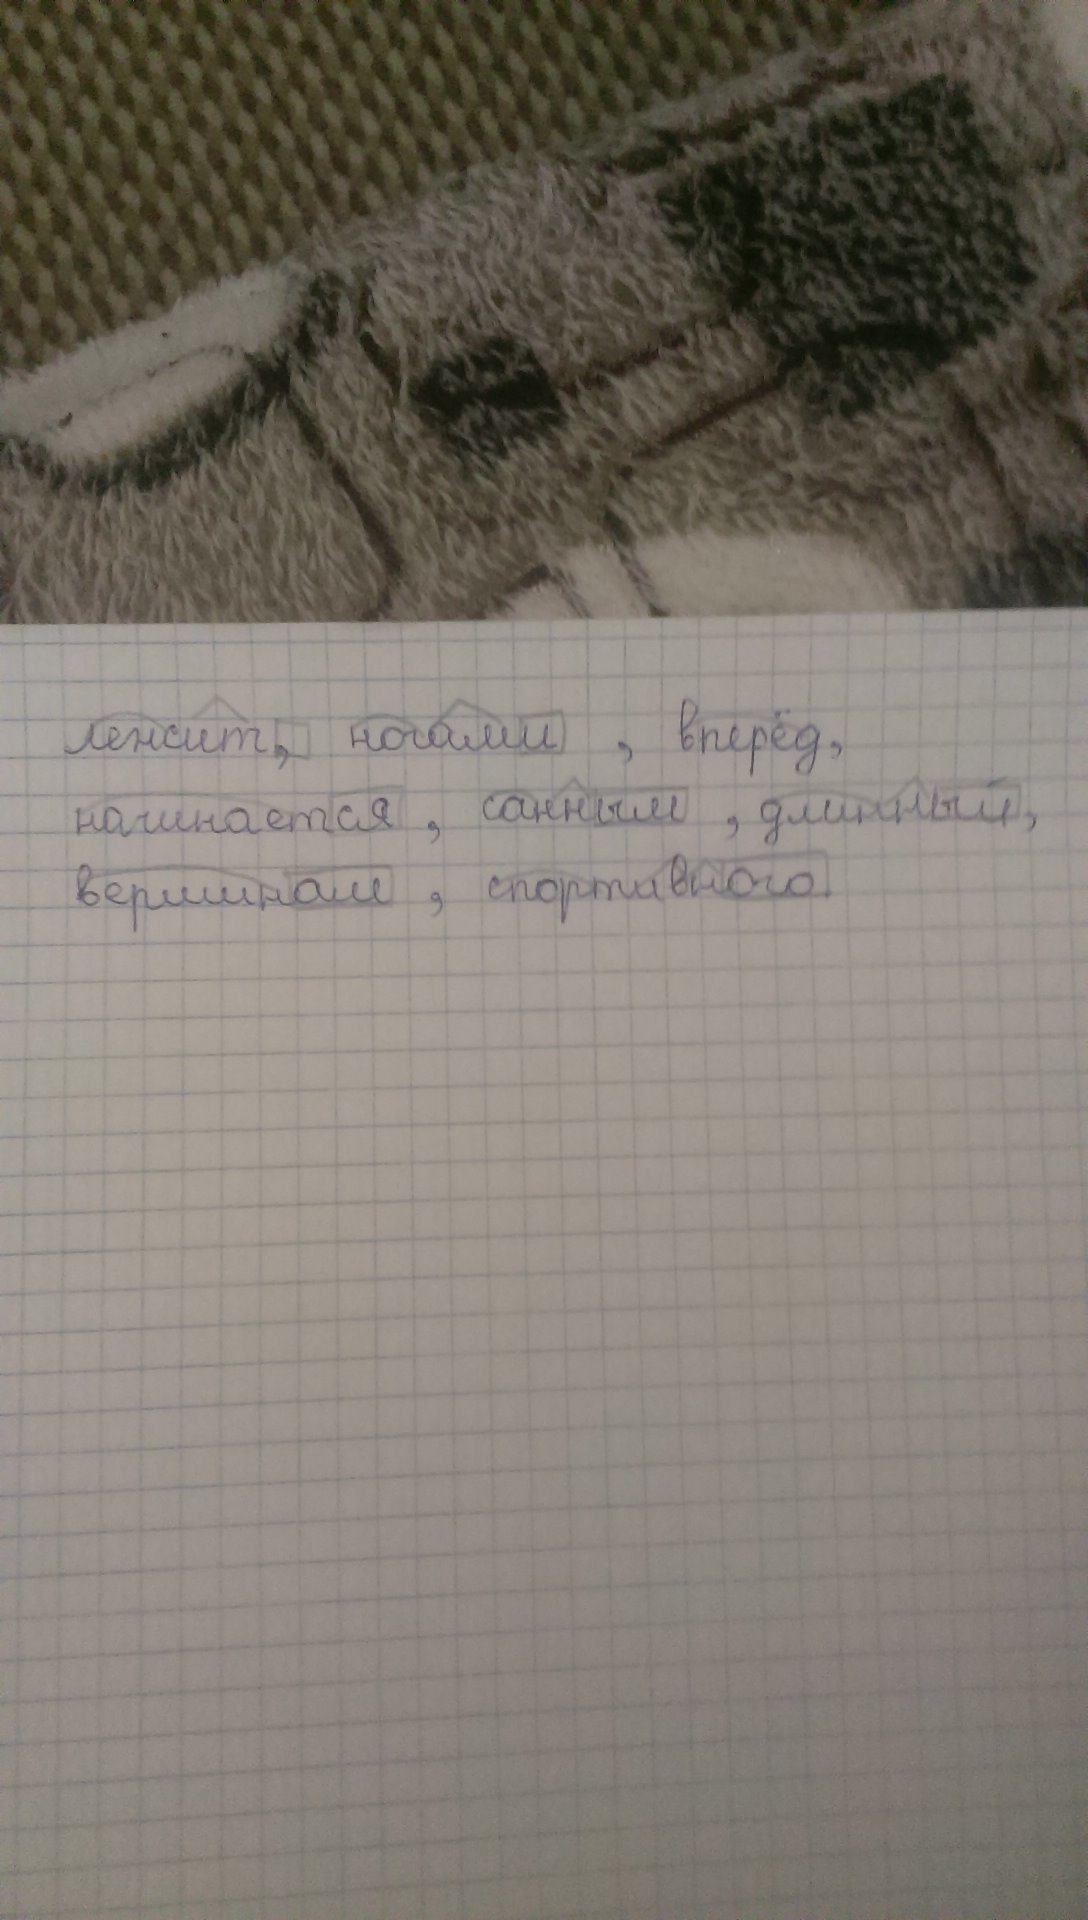 лежит, ногами, вперёд,
начинается, санным, длинный,
вершинам, спортивного